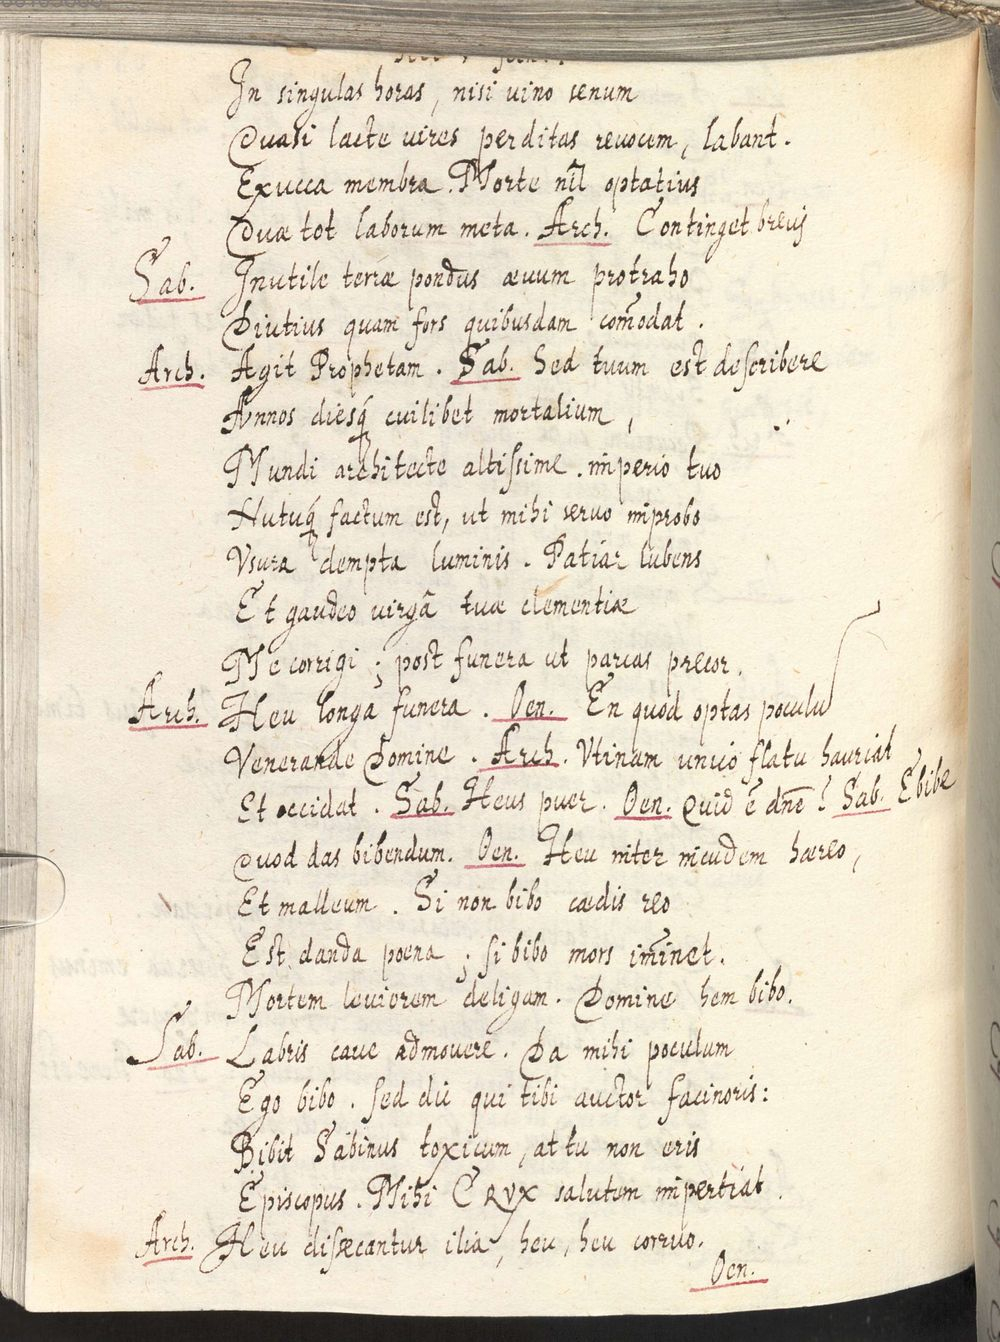 In singulas horas, nisi uino senum
Quasi lacte uires perditas reuocem, labant.
Exucca membra. Morte nĩl optatius
Quæ tot laborum meta. Arch. Continget breuj
Sab. Inutile terræ pondus æuum protraho
Diutius quam fors quibusdam com̃odat.
Arch. Agit Prophetam. Sab. Sed tuum est describere
Annos diesq́ cuilibet mortalium,
Mundi architecte altissime. imperio tuo
Nutuq́ factum est, ut mihi seruo improbo
Vsura dempta luminis. Patiar lubens
Et gaudeo uirgâ tuæ clementiæ
Me corrigi; post funera ut parcas precor.
Arch. Heu longa funera. Oen. En quod optas poculu
Venerande Domine. Arch. Vtinam unico flatu hauriat
Et occidat. Sab. Heus puer. Oen. Quid ẽ dñe? Sab. Ebibe
Quod das bibendum. Oen. Heu inter incudem hæreo,
Et malleum. Si non bibo cædis reo
Est danda poena; si bibo mors im̃inet.
Mortem leuiorem deligam. Domine hem bibo.
Sab. Labris caue admouere. Da mihi poculum
Ego bibo. sed dic qui tibi auctor facinoris:
Bibit Sabinus toxicum, at tu non eris
Episcopus. Mihi CRVX salutem impertiat.
Arch. Heu dissecantur ilia, heu, heu corruo.
Oen.